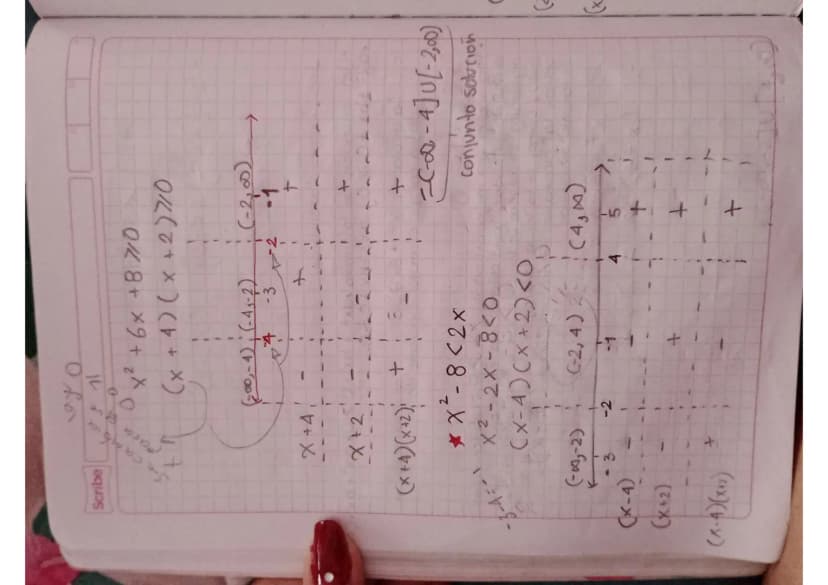 Scribe
x² + 6x + 8 ≥ 0
(x + 4)(x + 2) ≥ 0
(-∞, -4) (-4, -2) (-2, ∞)
-4 -3 -2 -1
x + 4 - + +
x + 2 - - +
(x+4)(x+2) + - +
= (-∞, -4] ∪ [-2, ∞)
conjunto solución
★ x² - 8 < 2x
x² - 2x - 8 < 0
(x - 4)(x + 2) < 0
(-∞, -2) (-2, 4) (4, ∞)
-3 -2 -1 4 5
(x-4) - - +
(x+2) - + +
(x-4)(x+2) + - +